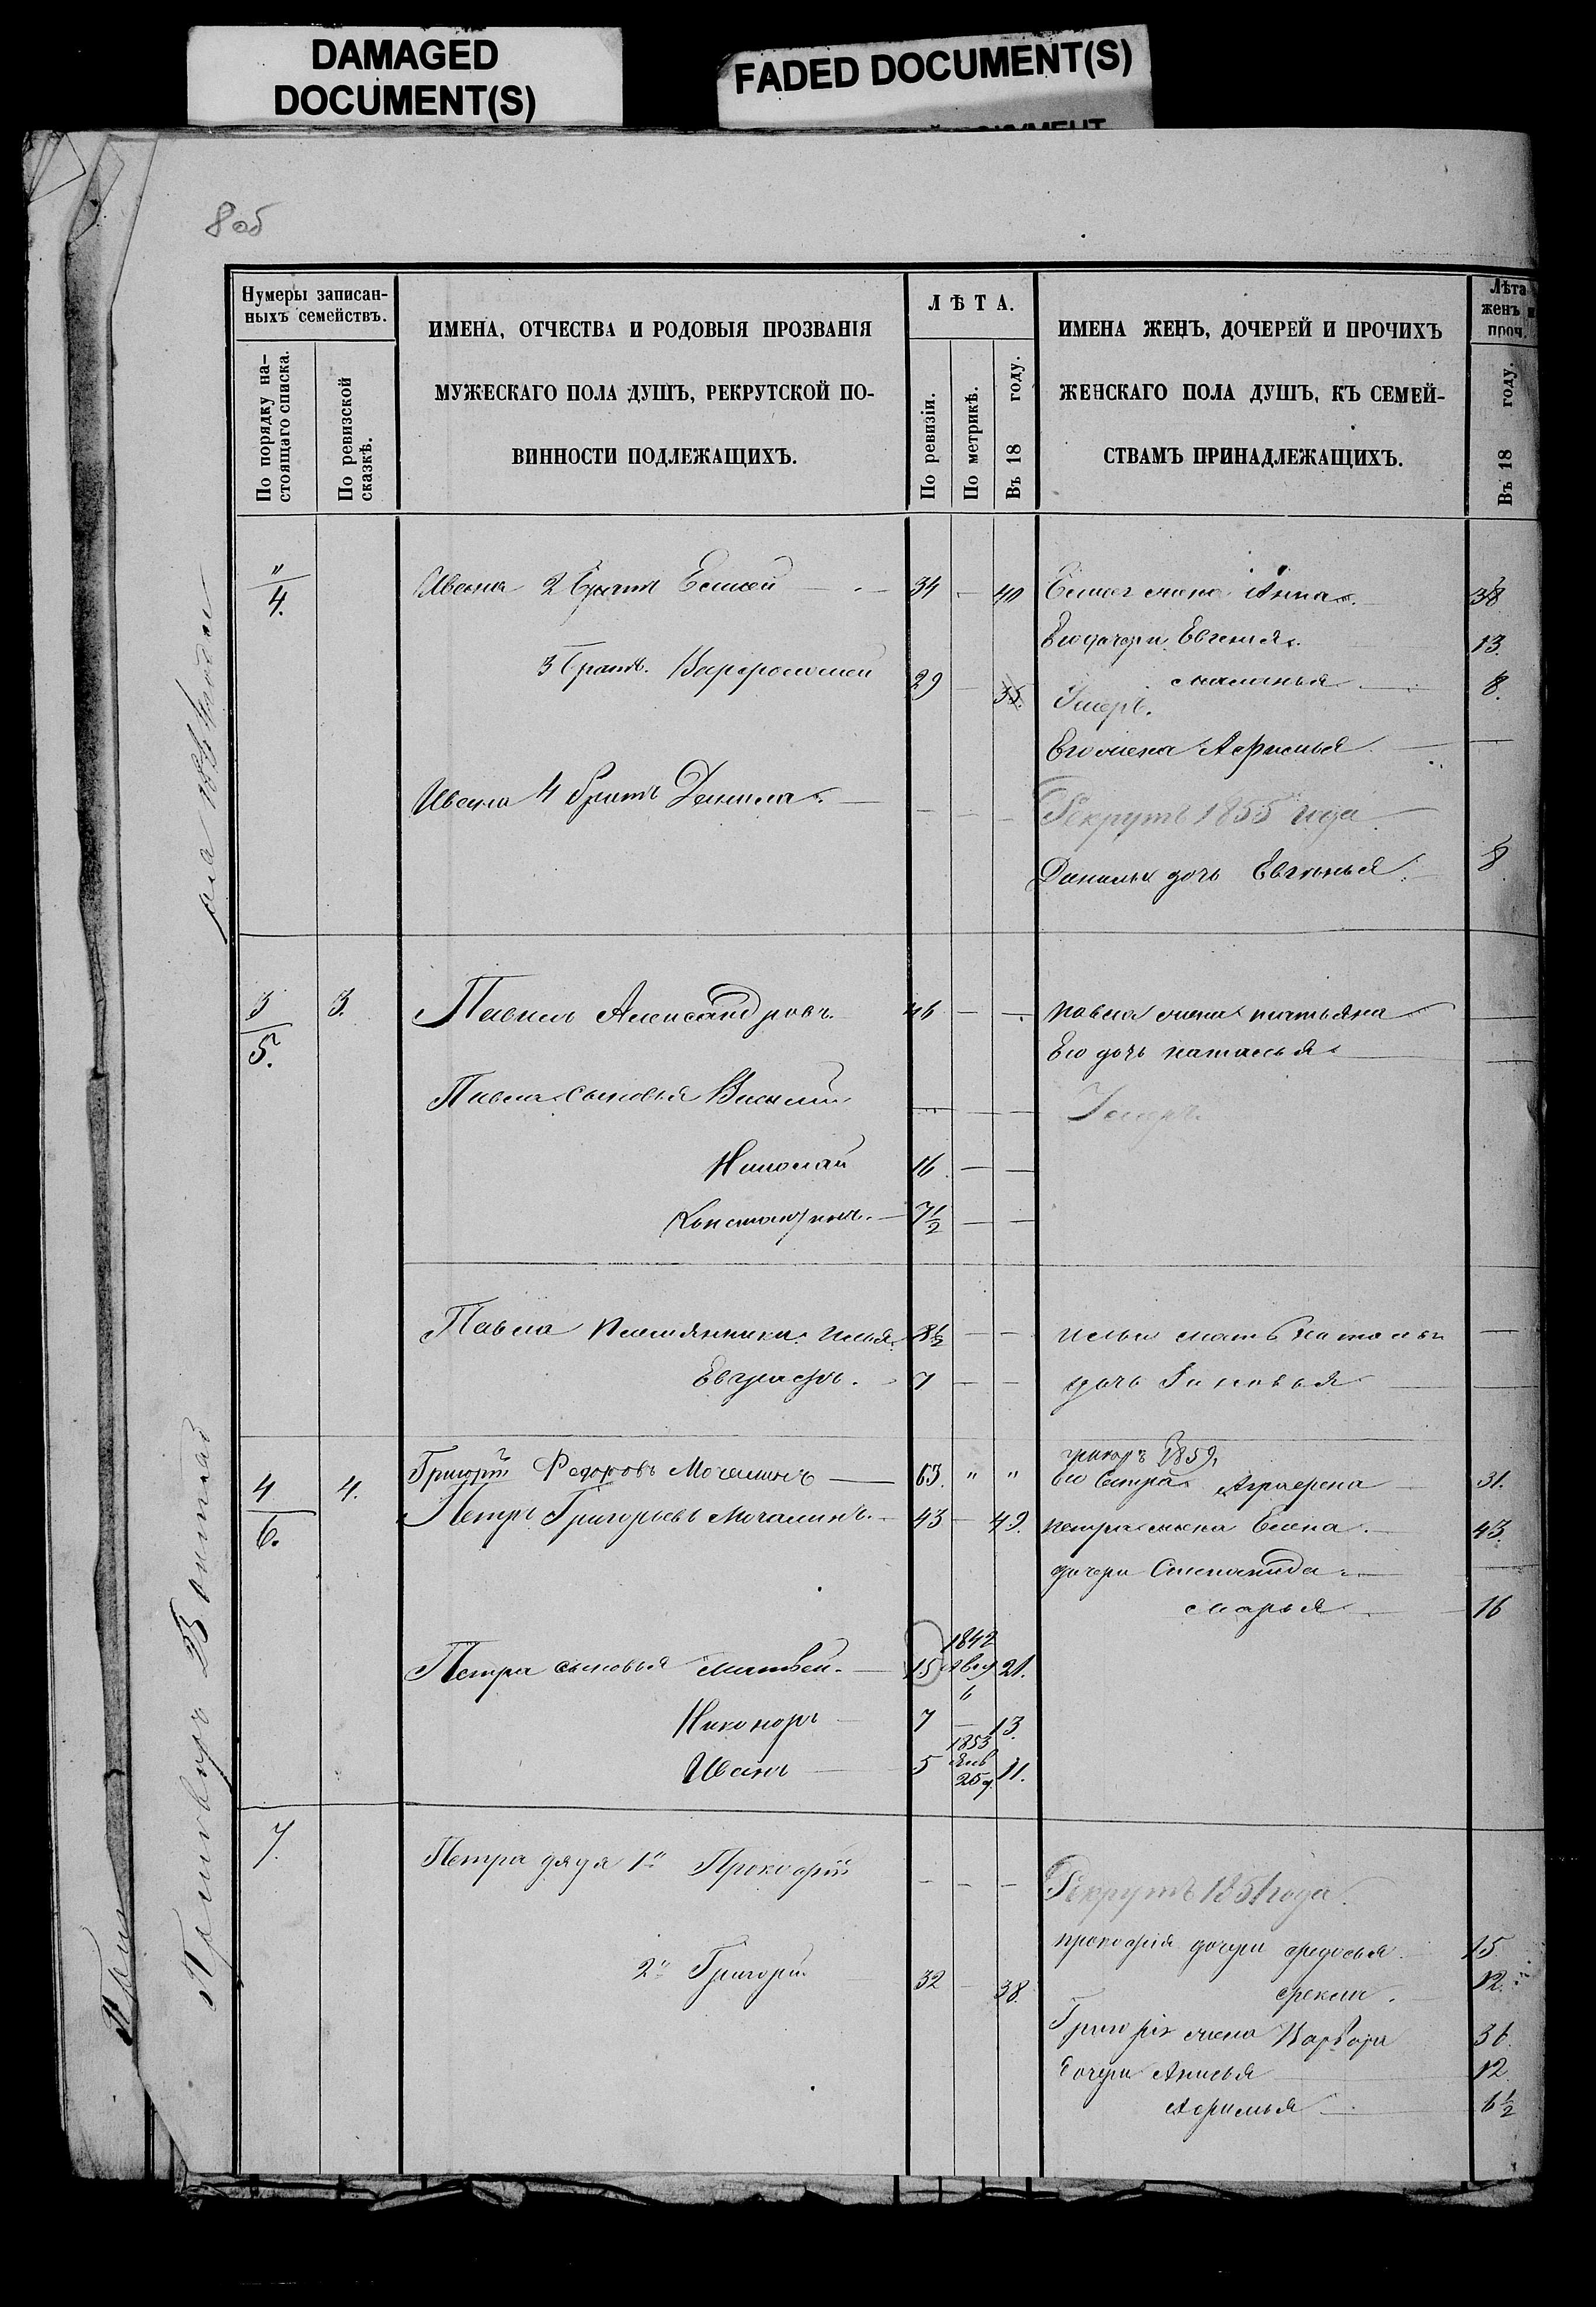 DAMAGED
DOCUMENT(S)
FADED DOCUMENT(S)
8об
Нумеры записан-
ныхъ семействъ.
По порядку на-
стоящаго списка.
По ревизской
сказкѣ.
ИМЕНА, ОТЧЕСТВА И РОДОВЫЯ ПРОЗВАНІЯ
МУЖЕСКАГО ПОЛА ДУШЪ, РЕКРУТСКОЙ ПО-
ВИННОСТИ ПОДЛЕЖАЩИХЪ.
ЛѢТА.
По ревизіи.
По метрикѣ.
Въ 18 году.
ИМЕНА ЖЕНЪ, ДОЧЕРЕЙ И ПРОЧИХЪ
ЖЕНСКАГО ПОЛА ДУШЪ, КЪ СЕМЕЙ-
СТВАМЪ ПРИНАДЛЕЖАЩИХЪ.
Лѣта
женъ и
проч.
Въ 18 году.
" / 4. Ивана 2 братъ 34 — 40 жена Анна 38
Его дочери Евгения 13.
3 братъ Варфоломей 29 — 35. Маланья 8.
Умеръ.
Его жена Афимья —
Ивана 4 братъ Данила — — — Рекрутъ 1855 года
Данилы дочь Евгенья 8
3 / 5. 3. Павелъ Александровъ 46 — — Павла жена Татьяна —
Его дочь Наталья —
Павла сыновья Василий — — — Умеръ
Николай 16 — —
Константинъ 7½ — —
Павла племянники Илья 8½ — — Ильи мать Наталья —
Евграфъ 7 — — дочь Зиновья —
4 / 6. 4. Григорій Федоровъ Мочалинъ 63. " " 1859,
Его сестра Аграфена 31.
Петръ Григорьевъ Мочалинъ 43 — 49. Петра жена Елена 43.
дочери Степанида —
Марья 16
Петра сыновья Матвей 15 1842 Авг 6 21.
Никоноръ 7 — 13.
Иванъ 5 1853 Янв 25 д. 11.
7. Петра дядя 1й Прокофій — — — Рекрутъ 1851 года.
Прокофія дочери Федосья 15
2й Григорій 32 — 38. Фекла 12
Григорія жена Варвара 36
дочери Анисья 12
Афимья 6½